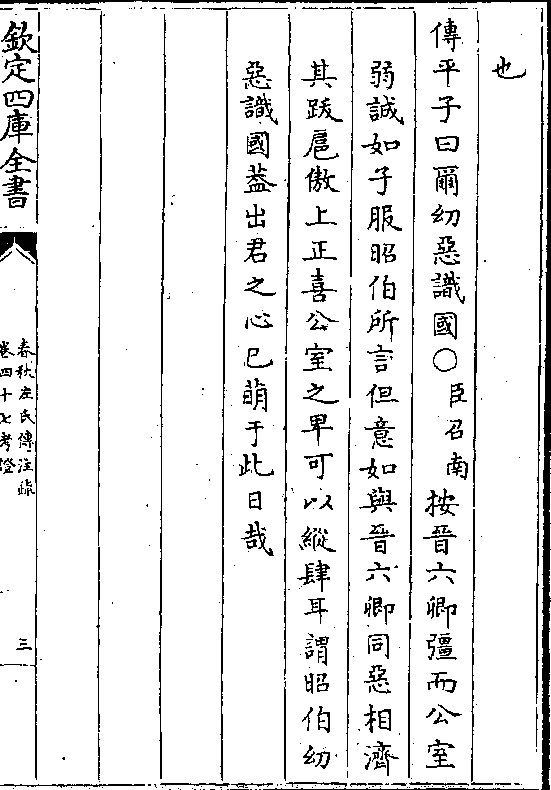 也
傳平子曰爾幼惡識國○臣召南按晉六卿彊而公室
弱誠如子服昭伯所言但意如與晉六卿同惡相濟
其跋扈傲上正喜公室之卑可以縱肆耳謂昭伯幼
惡識國葢出君之心已萌于此日哉
欽定四庫全書
春秋左氏傳注疏
卷四十七考證
三